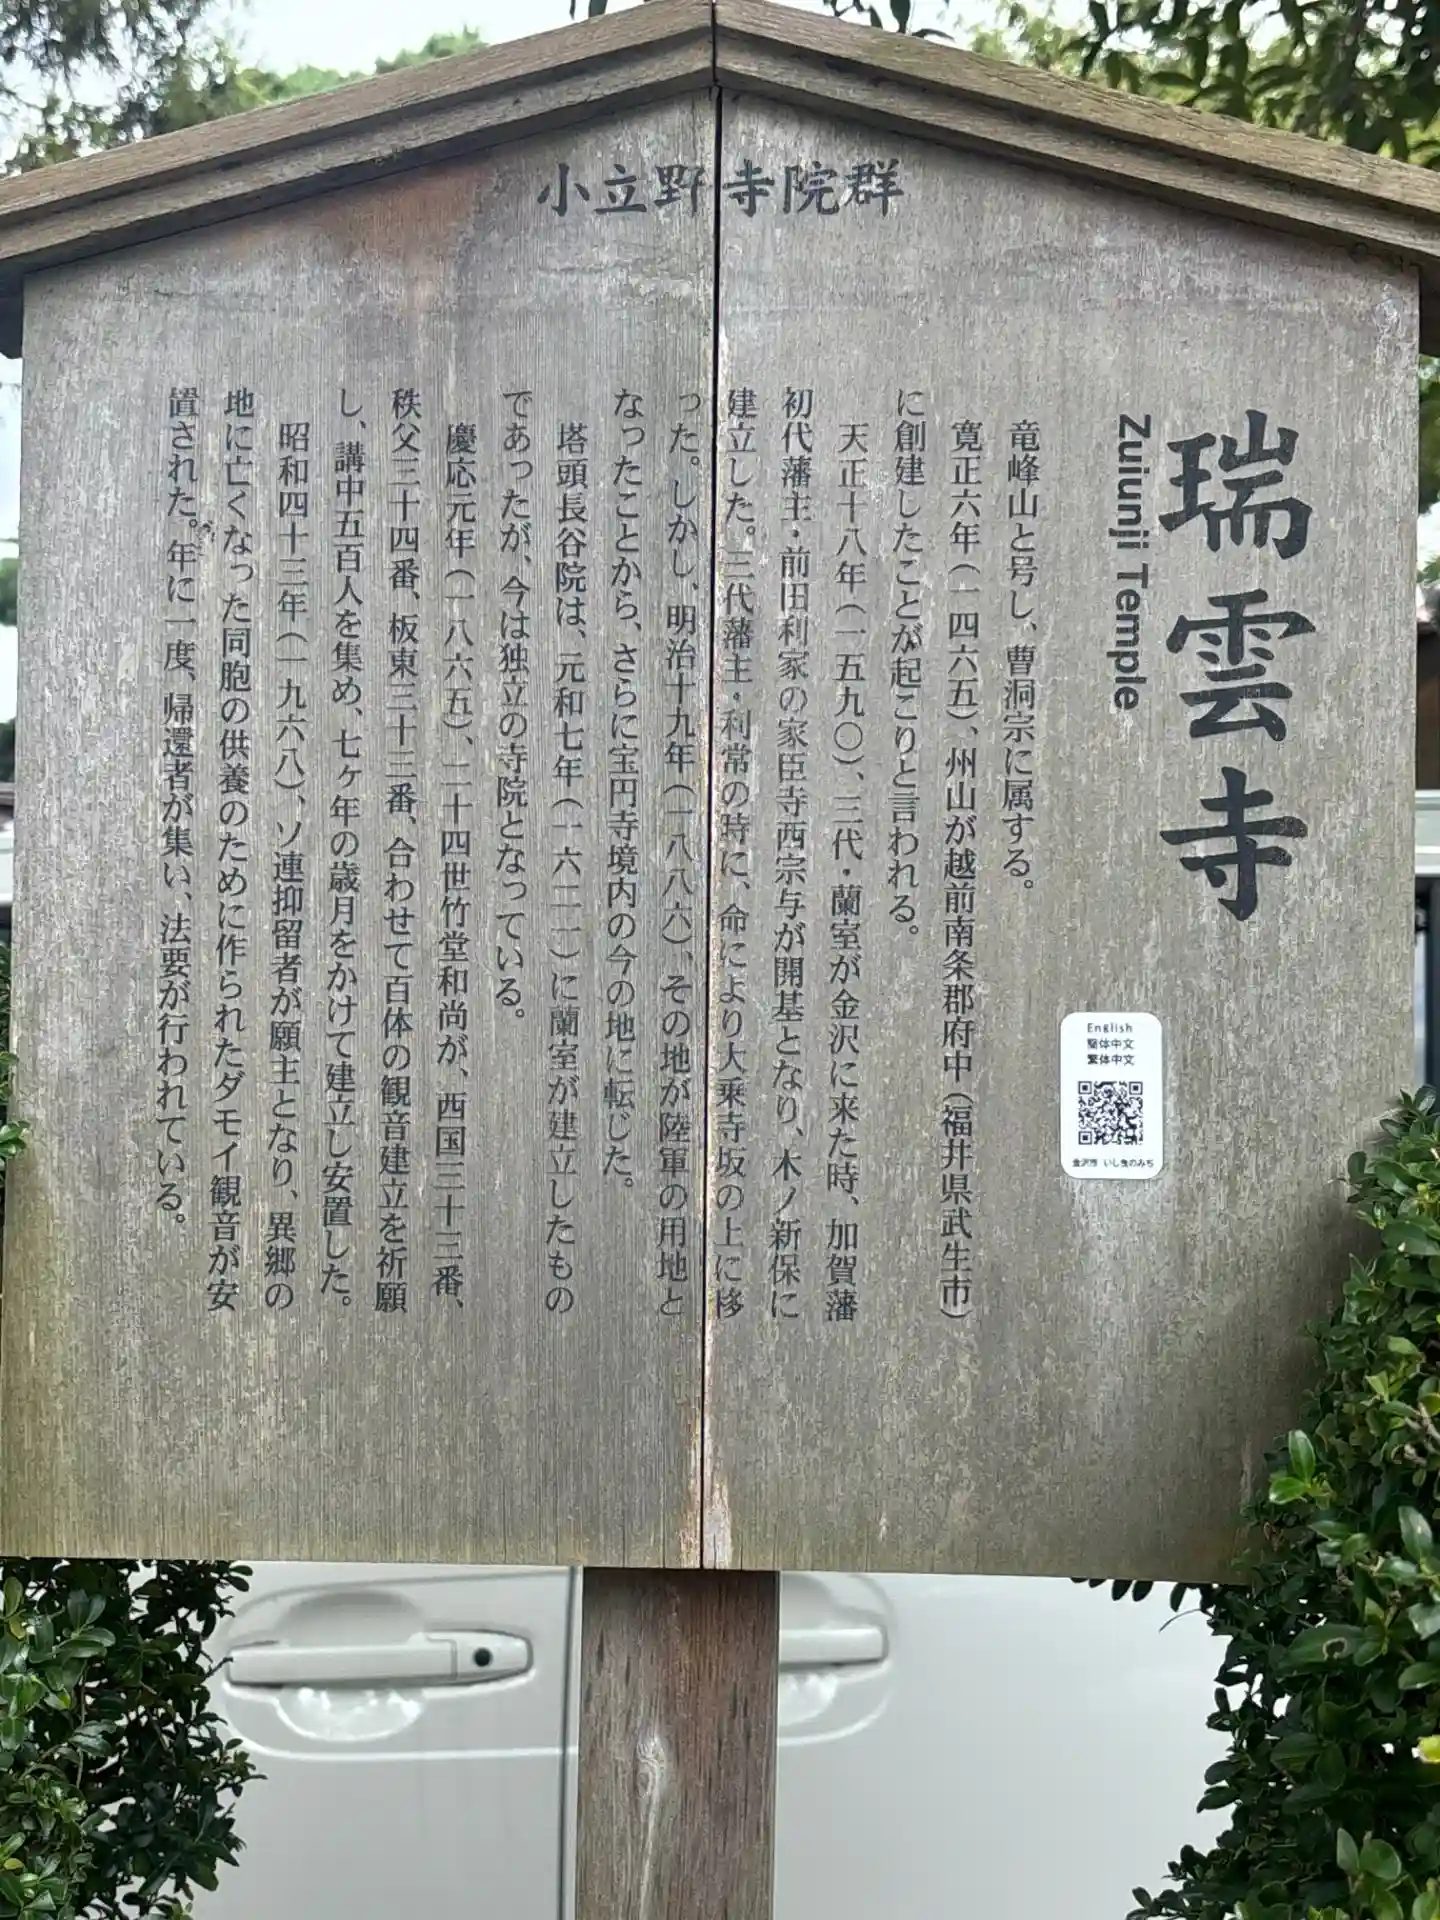 小立野寺院群
瑞雲寺
Zuiunji Temple
竜峰山と号し、曹洞宗に属する。
寛正六年（一四六五）、州山が越前南条郡府中（福井県武生市）
に創建したことが起こりと言われる。
天正十八年（一五九〇）、三代・蘭室が金沢に来た時、加賀藩
初代藩主・前田利家の家臣寺西宗与が開基となり、木ノ新保に
建立した。三代藩主・利常の時に、命により大乗寺坂の上に移
った。しかし、明治十九年（一八八六）、その地が陸軍の用地と
なったことから、さらに宝円寺境内の今の地に転じた。
塔頭長谷院は、元和七年（一六二一）に蘭室が建立したもの
であったが、今は独立の寺院となっている。
慶応元年（一八六五）、二十四世竹堂和尚が、西国三十三番、
秩父三十四番、板東三十三番、合わせて百体の観音建立を祈願
し、講中五百人を集め、七ヶ年の歳月をかけて建立し安置した。
昭和四十三年（一九六八）、ソ連抑留者が願主となり、異郷の
地に亡くなった同胞の供養のために作られたダモイ観音が安
置された。年に一度、帰還者が集い、法要が行われている。
English
簡体中文
繁体中文
金沢市 いし曳のみち